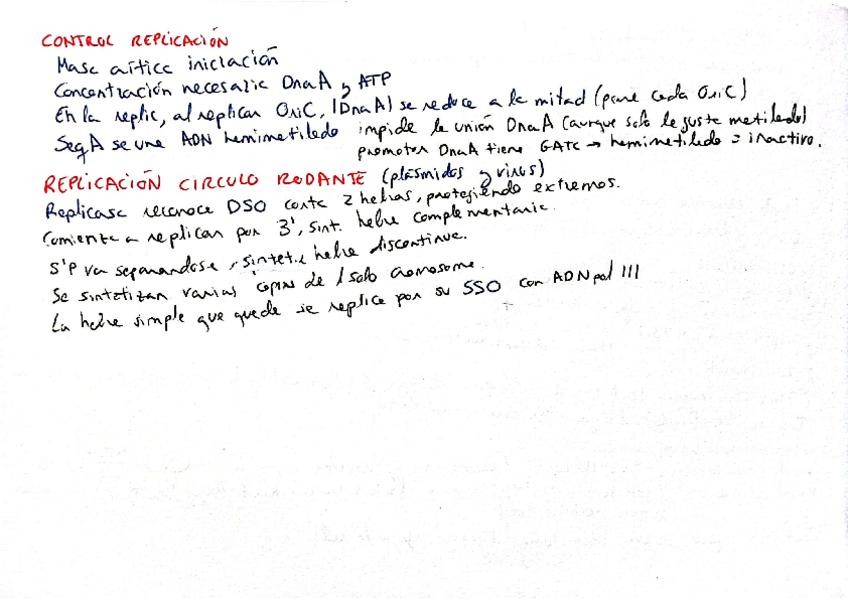 CONTROL REPLICACIÓN
Masa crítica iniciación
Concentración necesaria DnaA y ATP
En la replic, al replicar OriC, [DnaA] se reduce a la mitad (para cada OriC)
SeqA se une ADN hemimetilado impide la unión DnaA (aunque solo le guste metilado)
promotor DnaA tiene GATC → hemimetilado = inactivo.
REPLICACIÓN CIRCULO RODANTE (plásmidos y virus)
Replicasa reconoce DSO corta 2 hebras, protegiendo extremos.
Comienza a replicar por 3', sint. hebra complementaria.
5'P va separandose, sintetiza hebra discontinua.
Se sintetizan varias copias de 1 solo cromosoma.
La hebra simple que queda se replica por su SSO con ADN pol III